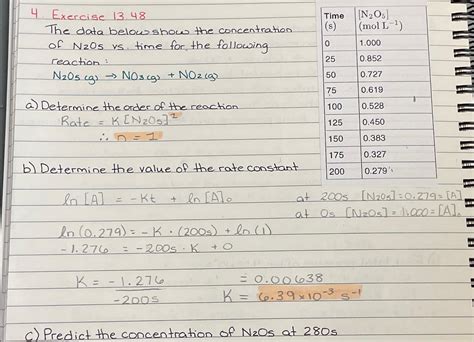 4 Exercise 13.48
The data below show the concentration
of N2O5 vs. time for the following
reaction:
N2O5 (g) → NO3 (g) + NO2 (g)
a) Determine the order of the reaction
Rate = K [N2O5]¹
∴ n = 1
b) Determine the value of the rate constant
ln [A] = -Kt + ln [A]₀
at 200s [N2O5] = 0.279 = [A]
at 0s [N2O5] = 1.000 = [A]₀
ln (0.279) = -K · (200s) + ln (1)
-1.276 = -200s · K + 0
K = -1.276 / -200s = 0.00638
K = 6.39 × 10⁻³ s⁻¹
c) Predict the concentration of N2O5 at 280s
Time (s) [N₂O₅] (mol L⁻¹)
0 1.000
25 0.852
50 0.727
75 0.619
100 0.528
125 0.450
150 0.383
175 0.327
200 0.279